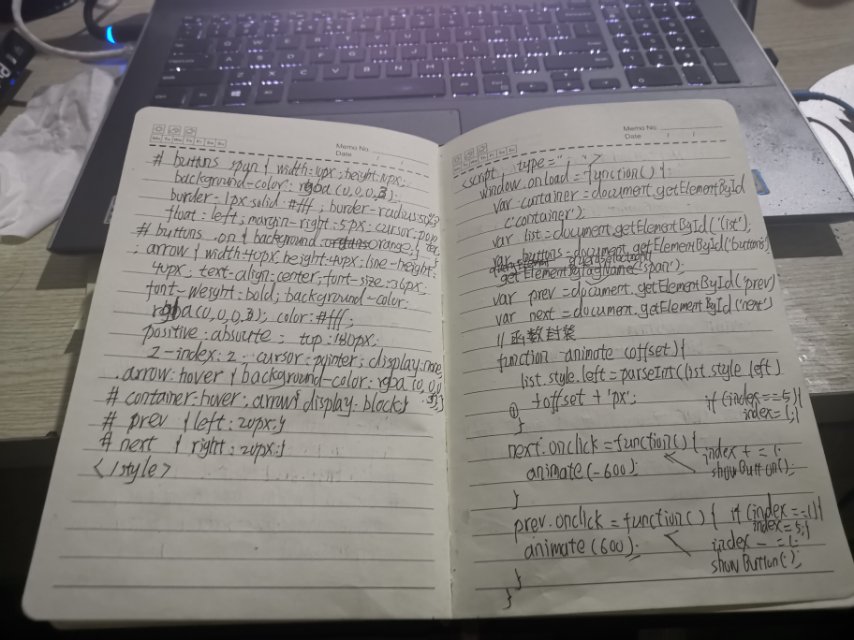 Memo No.
Date / /
# buttons span { width: 10px; height: 10px;
background-color: rgba (0,0,0,3);
border: 1px solid #fff; border-radius: 50%
float: left; margin-right: 5px; cursor:
# buttons .on { background: orange; }
.arrow { width: 40px; height: 40px; line-height:
40px; text-align: center; font-size: 36px;
font-weight: bold; background-color:
rgba (0,0,0,3); color: #fff;
positive: absourte; top: 180px;
z-index: 2; cursor: pointer; display: none;
.arrow:hover { background-color: rgba (0,0,0
# container:hover .arrow{ display: block;}
# prev { left: 20px; }
# next { right: 20px; }
</style>
Memo No.
Date / /
<script type="
window.onload = function() {
var container = document.getElementById
("container");
var list = document.getElementById('list');
var buttons = document.getElementById('buttons')
getElementByTagName('span');
var prev = document.getElementById('prev')
var next = document.getElementById('next')
// 函数封装
function animate (offset) {
list.style.left = parseInt(list.style.left)
+ offset + 'px'; if (index == 5){
} index = 1;}
next.onclick = function() { index + = 1;
animate (-600) showButton();
}
prev.onclick = function() { if (index == 1){
animate (600). index = 5;}
index - = 1;
showButton();
}
}